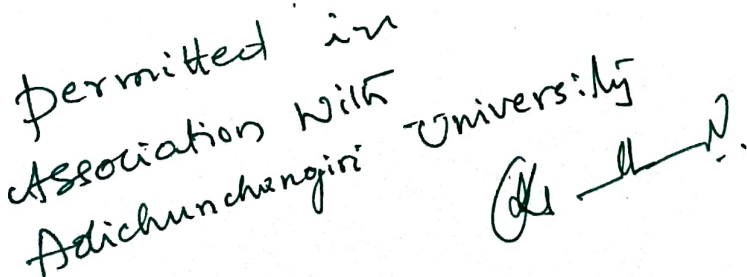 permitted in
Association with
Adichunchangiri University